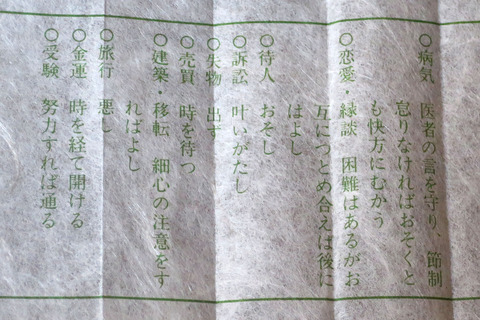 ○病気　医者の言を守り、節制
怠りなければおそくと
も快方にむかう
○恋愛・縁談　困難はあるがお
互につとめ合えば後に
はよし
○待人　おそし
○訴訟　叶いがたし
○失物　出ず
○売買　時を待つ
○建築・移転　細心の注意をす
ればよし
○旅行　悪し
○金運　時を経て開ける
○受験　努力すれば通る